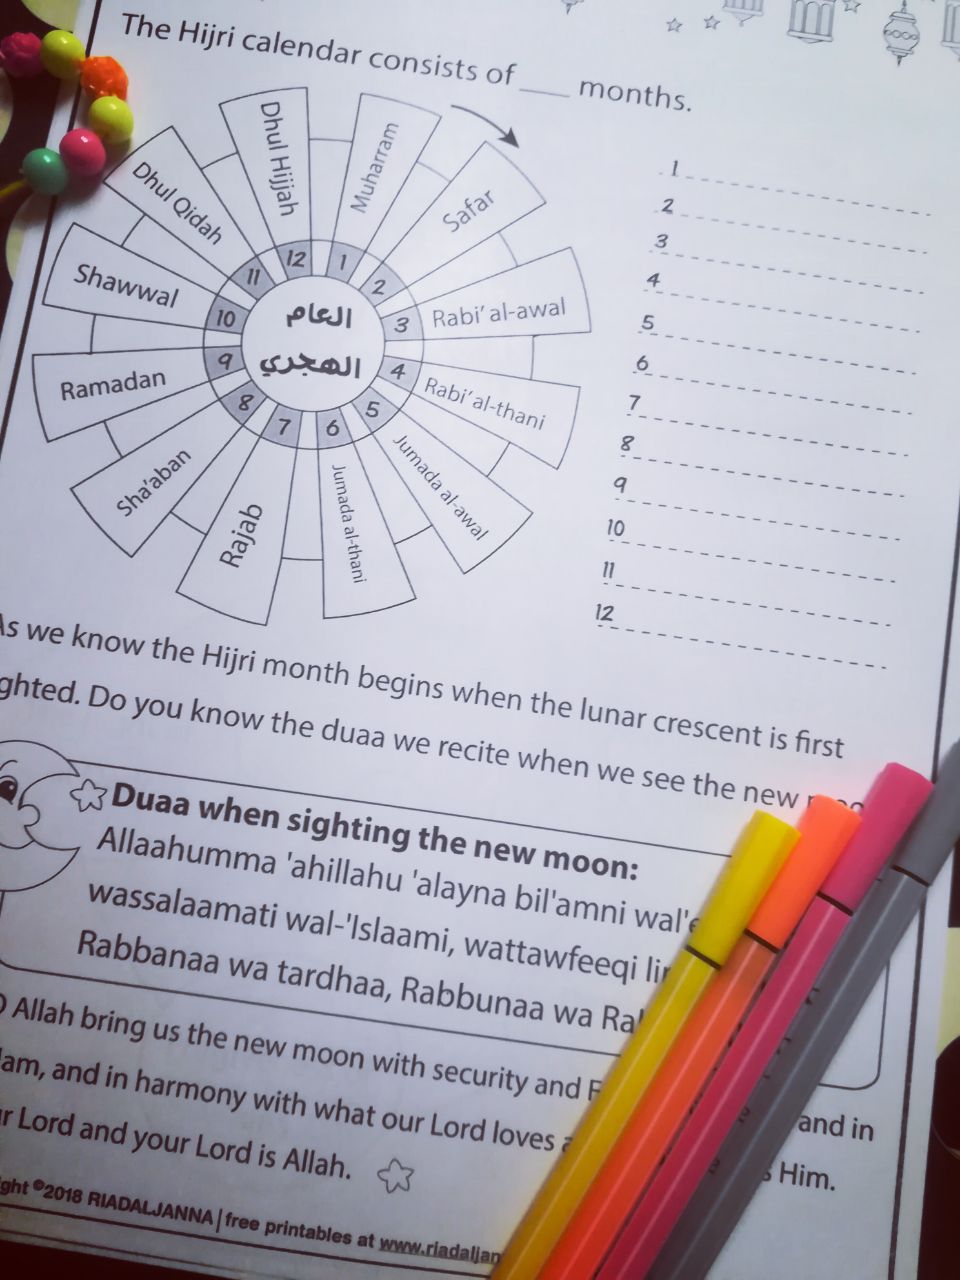 The Hijri calendar consists of ____ months.
Muharram
Safar
Rabi' al-awal
Rabi' al-thani
Jumada al-awal
Jumada al-thani
Rajab
Sha'aban
Ramadan
Shawwal
Dhul Qidah
Dhul Hijjah
1
2
3
4
5
6
7
8
9
10
11
12
العام
الهجري
1
2
3
4
5
6
7
8
9
10
11
12
As we know the Hijri month begins when the lunar crescent is first
Do you know the duaa we recite when we see the new
Duaa when sighting the new moon:
Allaahumma 'ahillahu 'alayna bil'amni
wassalaamati wal-'Islaami, wattawfeeqi
Rabbanaa wa tardhaa, Rabbunaa wa
Allah bring us the new moon with security and
and in
and in harmony with what our Lord loves
Him.
Lord and your Lord is Allah.
©2018 RIADALJANNA | free printables at